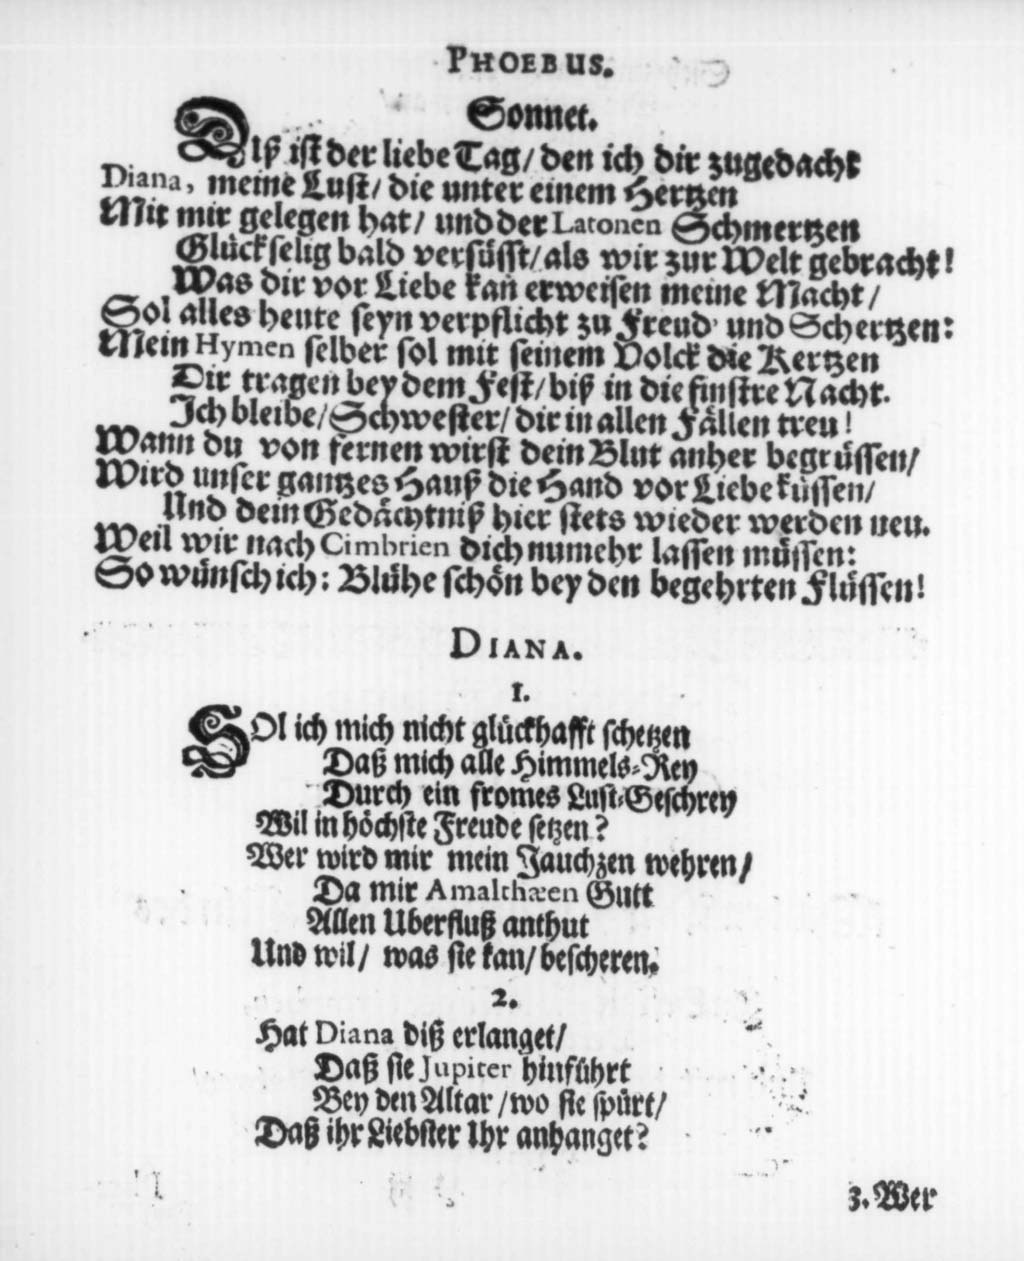 PHOEBUS.
Sonnet.
DIß ist der liebe Tag/ den ich dir zugedacht
Diana, meine Lust/ die unter einem Hertzen
Mit mir gelegen hat/ und der Latonen Schmertzen
Glückselig bald versüsst/ als wir zur Welt gebracht!
Was dir vor Liebe kan erweisen meine Macht/
Sol alles heute seyn verpflicht zu Freud' und Schertzen:
Mein Hymen selber sol mit seinem Volck die Kertzen
Dir tragen bey dem Fest/ biß in die finstre Nacht.
Ich bleibe/ Schwester/ dir in allen Fällen treu!
Wann du von fernen wirst dein Blut anher begrüssen/
Wird unser gantzes Hauß die Hand vor Liebe küssen/
Und dein Gedächtniß hier stets wieder werden neu.
Weil wir nach Cimbrien dich numehr lassen müssen:
So wünsch ich: Blühe schön bey den begehrten Flüssen!
DIANA.
1.
SOl ich mich nicht glückhafft schetzen
Daß mich alle Himmels-Rey
Durch ein fromes Lust-Geschrey
Wil in höchste Freude setzen?
Wer wird mir mein Jauchzen wehren/
Da mir Amalthæen Gutt
Allen Uberfluß anthut
Und wil/ was sie kan/ bescheren.
2.
Hat Diana diß erlanget/
Daß sie Jupiter hinführt
Bey den Altar/ wo sie spürt/
Daß ihr Liebster Ihr anhanget?
3. Wer